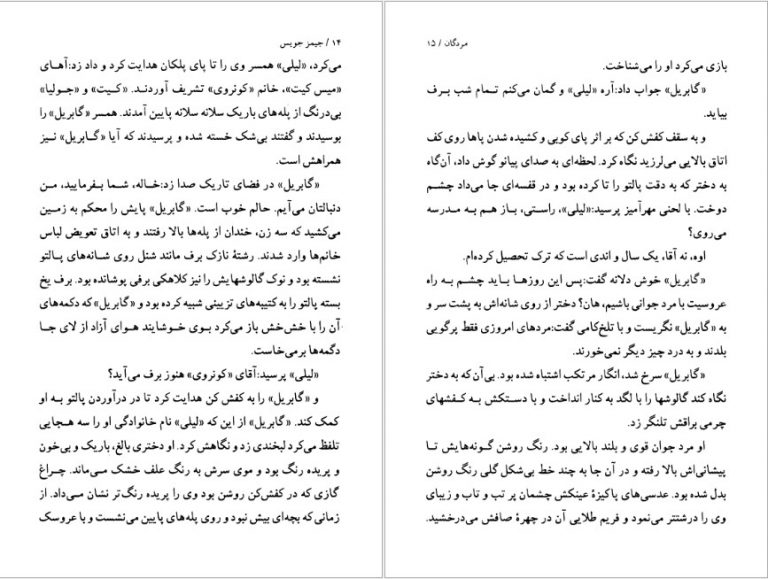 ۱۴ / جیمز جویس
می‌کرد، «لیلی» همسر وی را تا پای پلکان هدایت کرد و داد زد:آهای
«میس کیت»، خانم «کونروی» تشریف آوردند. «کیت» و «جولیا»
بی‌درنگ از پله‌های باریک سلانه سلانه پایین آمدند. همسر «گابریل» را
بوسیدند و گفتند بی‌شک خسته شده و پرسیدند که آیا «گابریل» نیز
همراهش است.
«گابریل» در فضای تاریک صدا زد:خاله، شما بفرمایید، من
دنبالتان می‌آیم. حالم خوب است. «گابریل» پایش را محکم به زمین
می‌کشید که سه زن، خندان از پله‌ها بالا رفتند و به اتاق تعویض لباس
خانم‌ها وارد شدند. رشتهٔ نازک برف مانند شنل روی شانه‌های پالتو
نشسته بود و نوک گالوشهایش را نیز کلاهکی برفی پوشانده بود. برف یخ
بسته پالتو را به کتیبه‌های تزیینی شبیه کرده بود و «گابریل» که دکمه‌های
آن را با خش‌خش باز می‌کرد بوی خوشایند هوای آزاد از لای جا
دگمه‌ها برمی‌خاست.
«لیلی» پرسید:آقای «کونروی» هنوز برف می‌آید؟
و «گابریل» را به کفش کن هدایت کرد تا در درآوردن پالتو به او
کمک کند. «گابریل» از این که «لیلی» نام خانوادگی او را سه هجایی
تلفظ می‌کرد لبخندی زد و نگاهش کرد. او دختری بالغ، باریک و بی‌خون
و پریده رنگ بود و موی سرش به رنگ علف خشک می‌ماند. چراغ
گازی که در کفش‌کن روشن بود وی را پریده رنگ‌تر نشان می‌داد. از
زمانی که بچه‌ای بیش نبود و روی پله‌های پایین می‌نشست و با عروسک
مردگان / ۱۵
بازی می‌کرد او را می‌شناخت.
«گابریل» جواب داد:آره «لیلی» و گمان می‌کنم تمام شب برف
بیاید.
و به سقف کفش کن که بر اثر پای کوبی و کشیده شدن پاها روی کف
اتاق بالایی می‌لرزید نگاه کرد. لحظه‌ای به صدای پیانو گوش داد، آن‌گاه
به دختر که به دقت پالتو را تا کرده بود و در قفسه‌ای جا می‌داد چشم
دوخت. با لحنی مهرآمیز پرسید:«لیلی»، راستی، باز هم به مدرسه
می‌روی؟
اوه، نه آقا، یک سال و اندی است که ترک تحصیل کرده‌ام.
«گابریل» خوش دلانه گفت:پس این روزها باید چشم به راه
عروسیت با مرد جوانی باشیم، هان؟ دختر از روی شانه‌اش به پشت سر و
به «گابریل» نگریست و با تلخ‌کامی گفت:مردهای امروزی فقط پرگویی
بلدند و به درد چیز دیگر نمی‌خورند.
«گابریل» سرخ شد، انگار مرتکب اشتباه شده بود. بی‌آن که به دختر
نگاه کند گالوشها را با لگد به کنار انداخت و با دستکش به کفشهای
چرمی براقش تلنگر زد.
او مرد جوان قوی و بلند بالایی بود. رنگ روشن گونه‌هایش تا
پیشانی‌اش بالا رفته و در آن جا به چند خط بی‌شکل گلی رنگ روشن
بدل شده بود. عدسی‌های پاکیزهٔ عینکش چشمان پر تب و تاب و زیبای
وی را درشتتر می‌نمود و فریم طلایی آن در چهرهٔ صافش می‌درخشید.